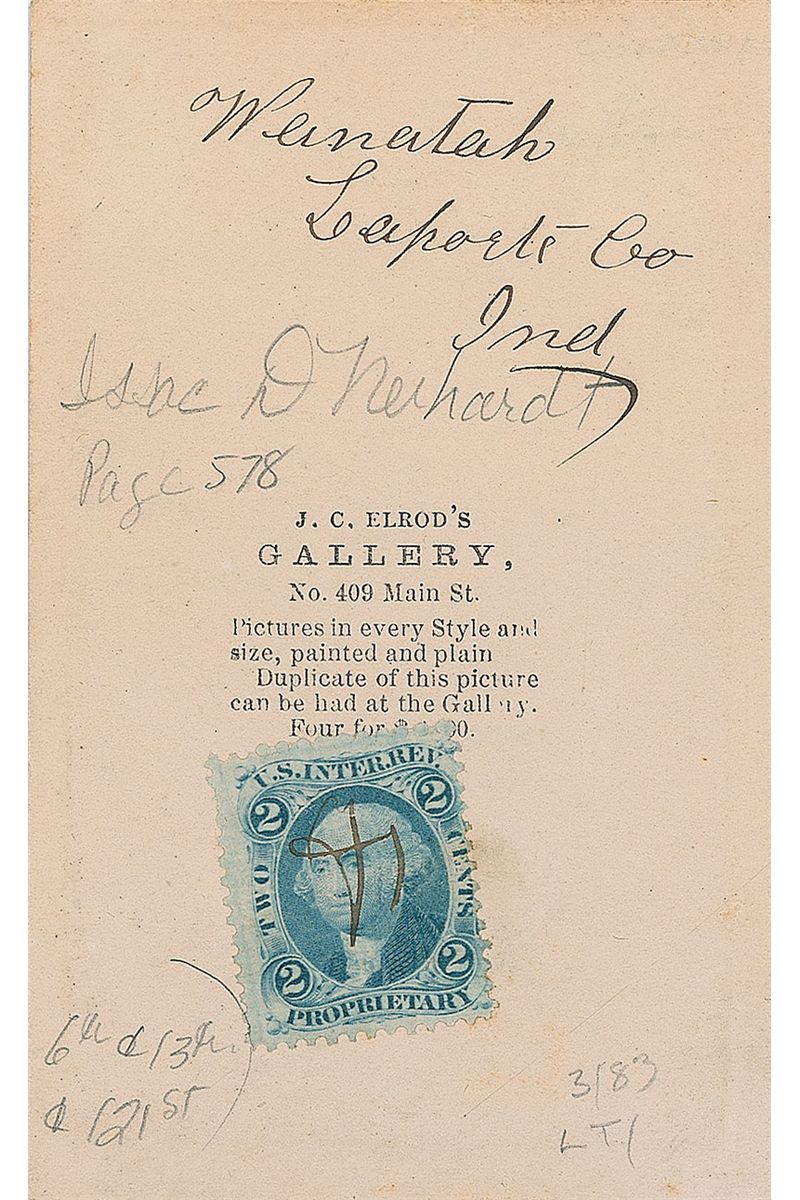 Wanatah
Laporte Co
Ind
Isaac D Nerhardt
Page 578
J. C. ELROD'S
GALLERY,
No. 409 Main St.
Pictures in every Style and
size, painted and plain
Duplicate of this picture
can be had at the Gallery.
Four for
U.S. INTER. REV.
2 2
TWO CENTS
2 2
PROPRIETARY
6th & 13th
& 121st
3/83